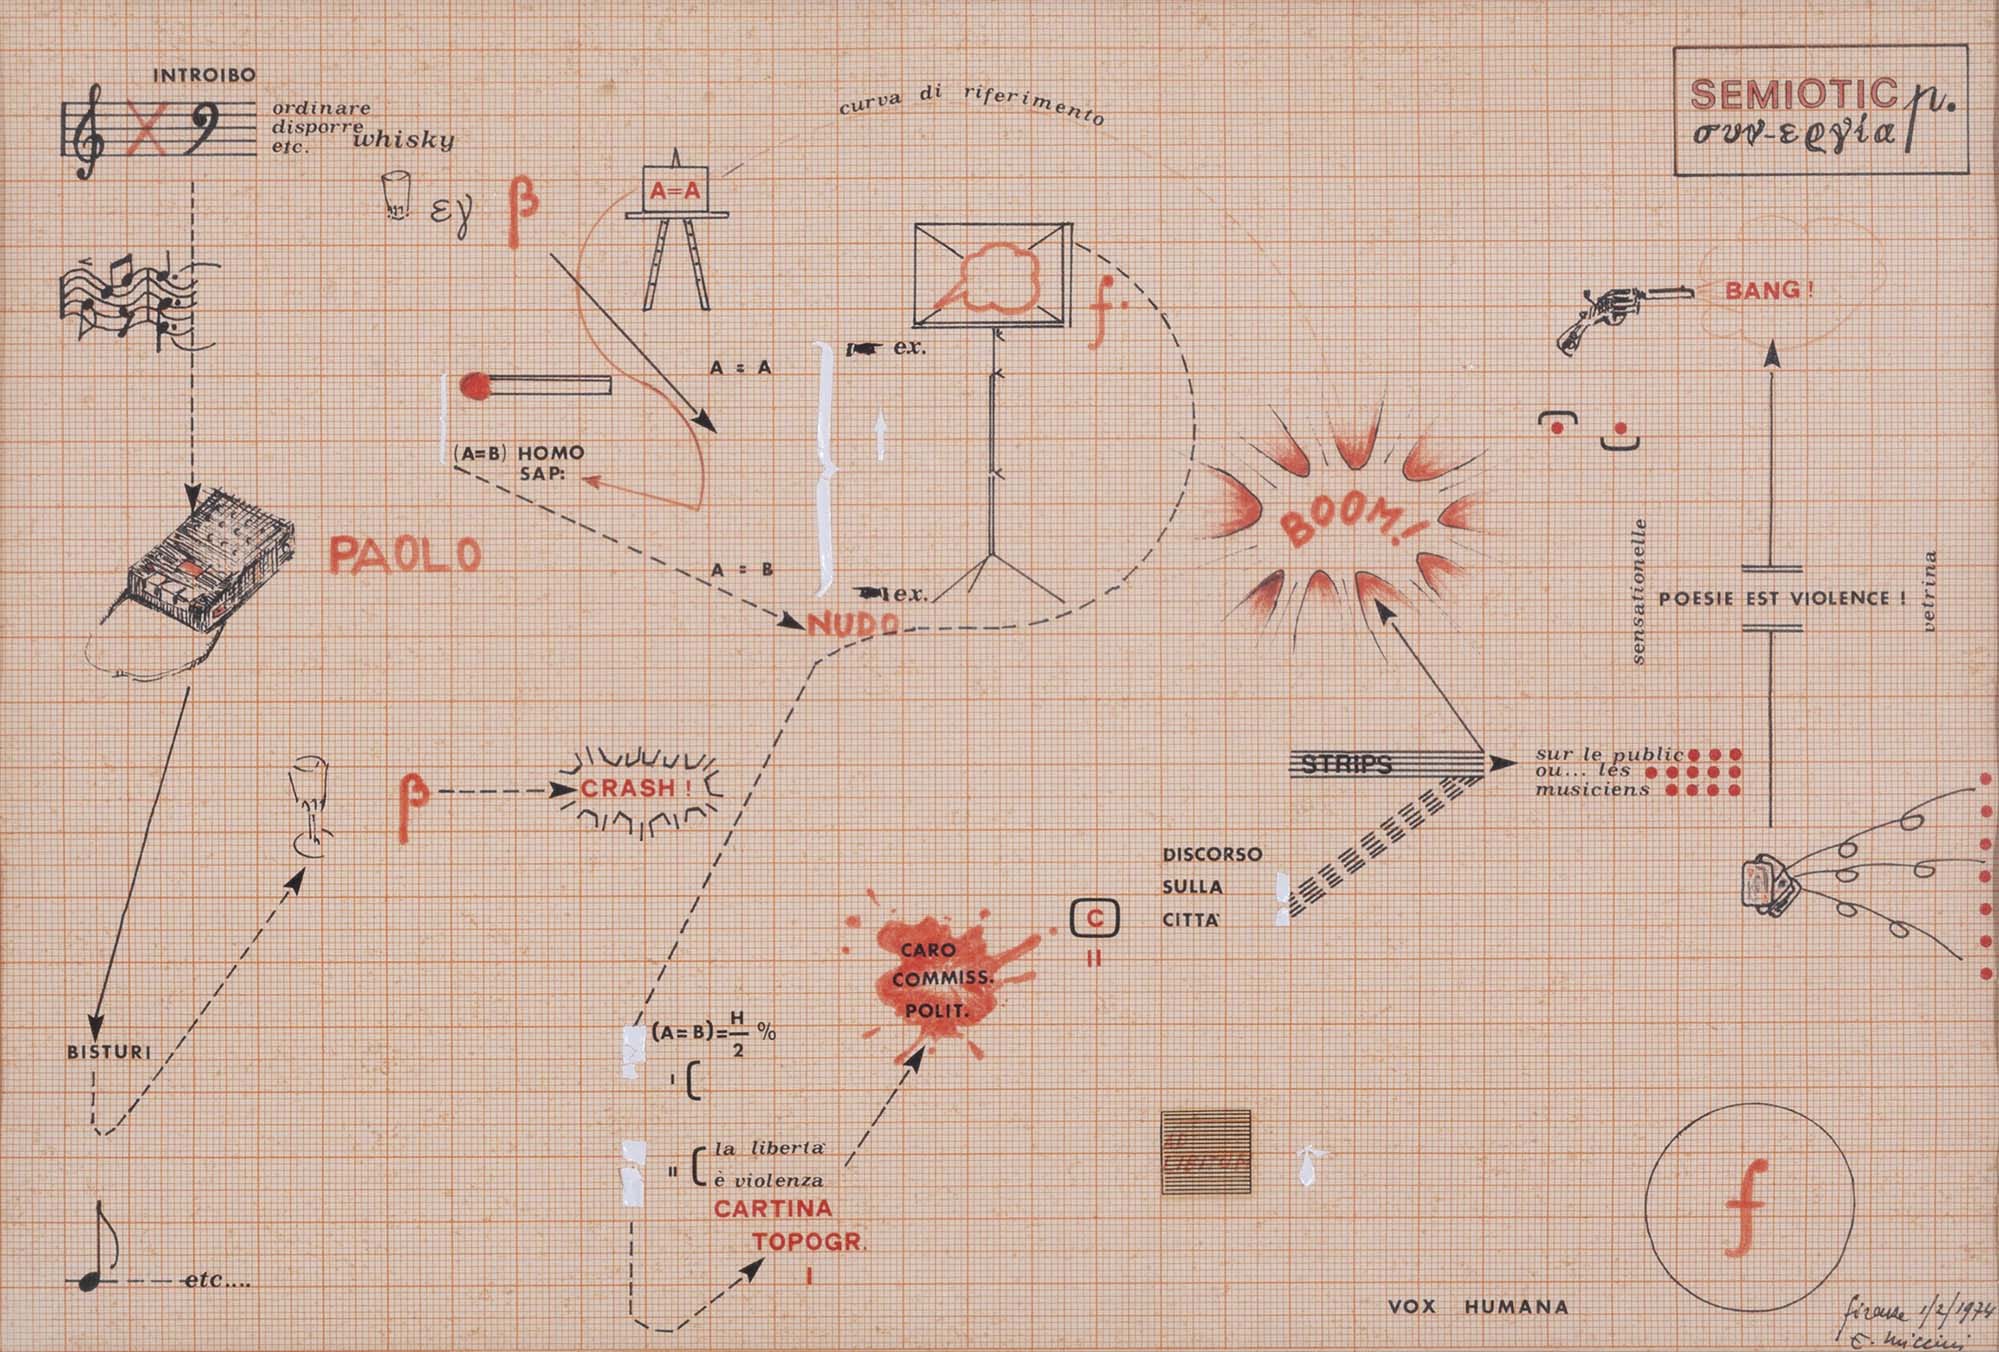 INTROIBO
ordinare
disporre
etc.
whisky
εγ
β
A=A
curva di riferimento
SEMIOTIC p.
συν-εργία
f.
BANG !
ex.
A = A
(A=B) HOMO
SAP:
PAOLO
A = B
ex.
NUDO
BOOM!
sensationelle
POESIE EST VIOLENCE !
vetrina
β
CRASH !
STRIPS
sur le public
ou... les
musiciens
DISCORSO
SULLA
CITTA'
C
II
CARO
COMMISS.
POLIT.
BISTURI
(A=B)=H/2 %
I (
II ( la libertà
è violenza
CARTINA
TOPOGR.
I
f
etc....
VOX HUMANA
firenze 1/2/1974
E. Miccini